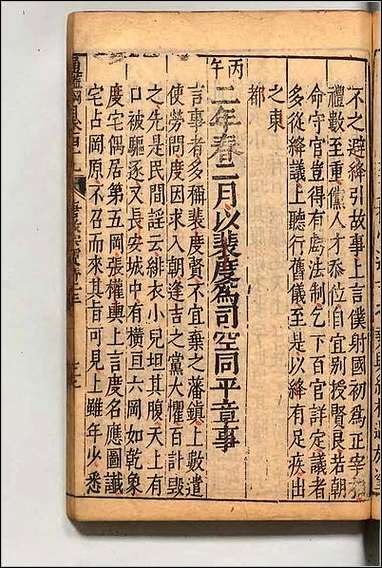 不之避絳引故事上言僕射國初爲正宰相
禮數至重儻人才忝位自宜别授賢良若朝
命守官豈得有虧法制乞下百官詳定議者
多從絳議上聽行舊儀至是以絳有足疾出
之東
都
丙午
二年春二月以裴度爲司空同平章事
言事者多稱裴度賢不宜棄之藩鎭上數遣
使勞問度因求入朝逢吉之黨大懼百計毁
之先是民間謡云緋衣小兒坦其腹天上有
口被驅逐又長安城中有横亘六岡如乾象
度宅偶居第五岡張權輿上言度名應圖讖
宅占岡原不召而來其旨可見上雖年少悉